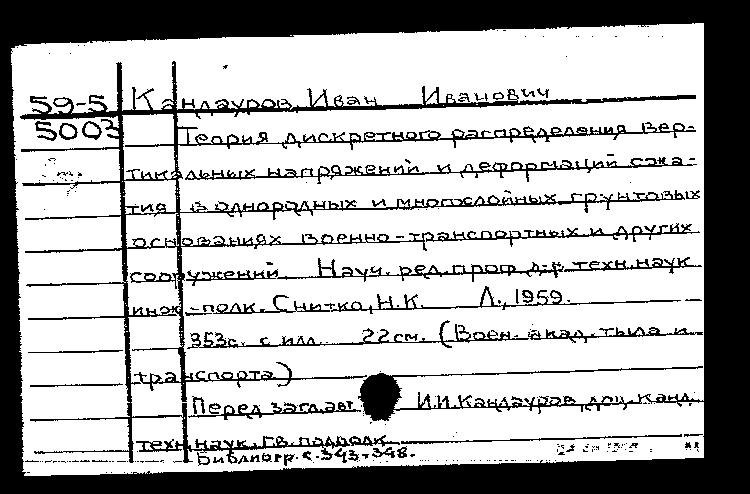 59-5 Кандауров, Иван Иванович
5003 Теория дискретного распределения вер-
тикальных напряжений и деформаций сжа-
тия в однородных и многослойных грунтовых
основаниях военно-транспортных и других
сооружений. Науч. ред. проф. д-р техн. наук
инж.-полк. Снитко, Н.К. Л., 1959.
353с. с илл. 22см. (Воен. акад. тыла и
транспорта)
Перед загл. авт. И.И. Кандауров, доц. канд.
техн. наук, гв. подполк.
Библиогр. с. 343-348.